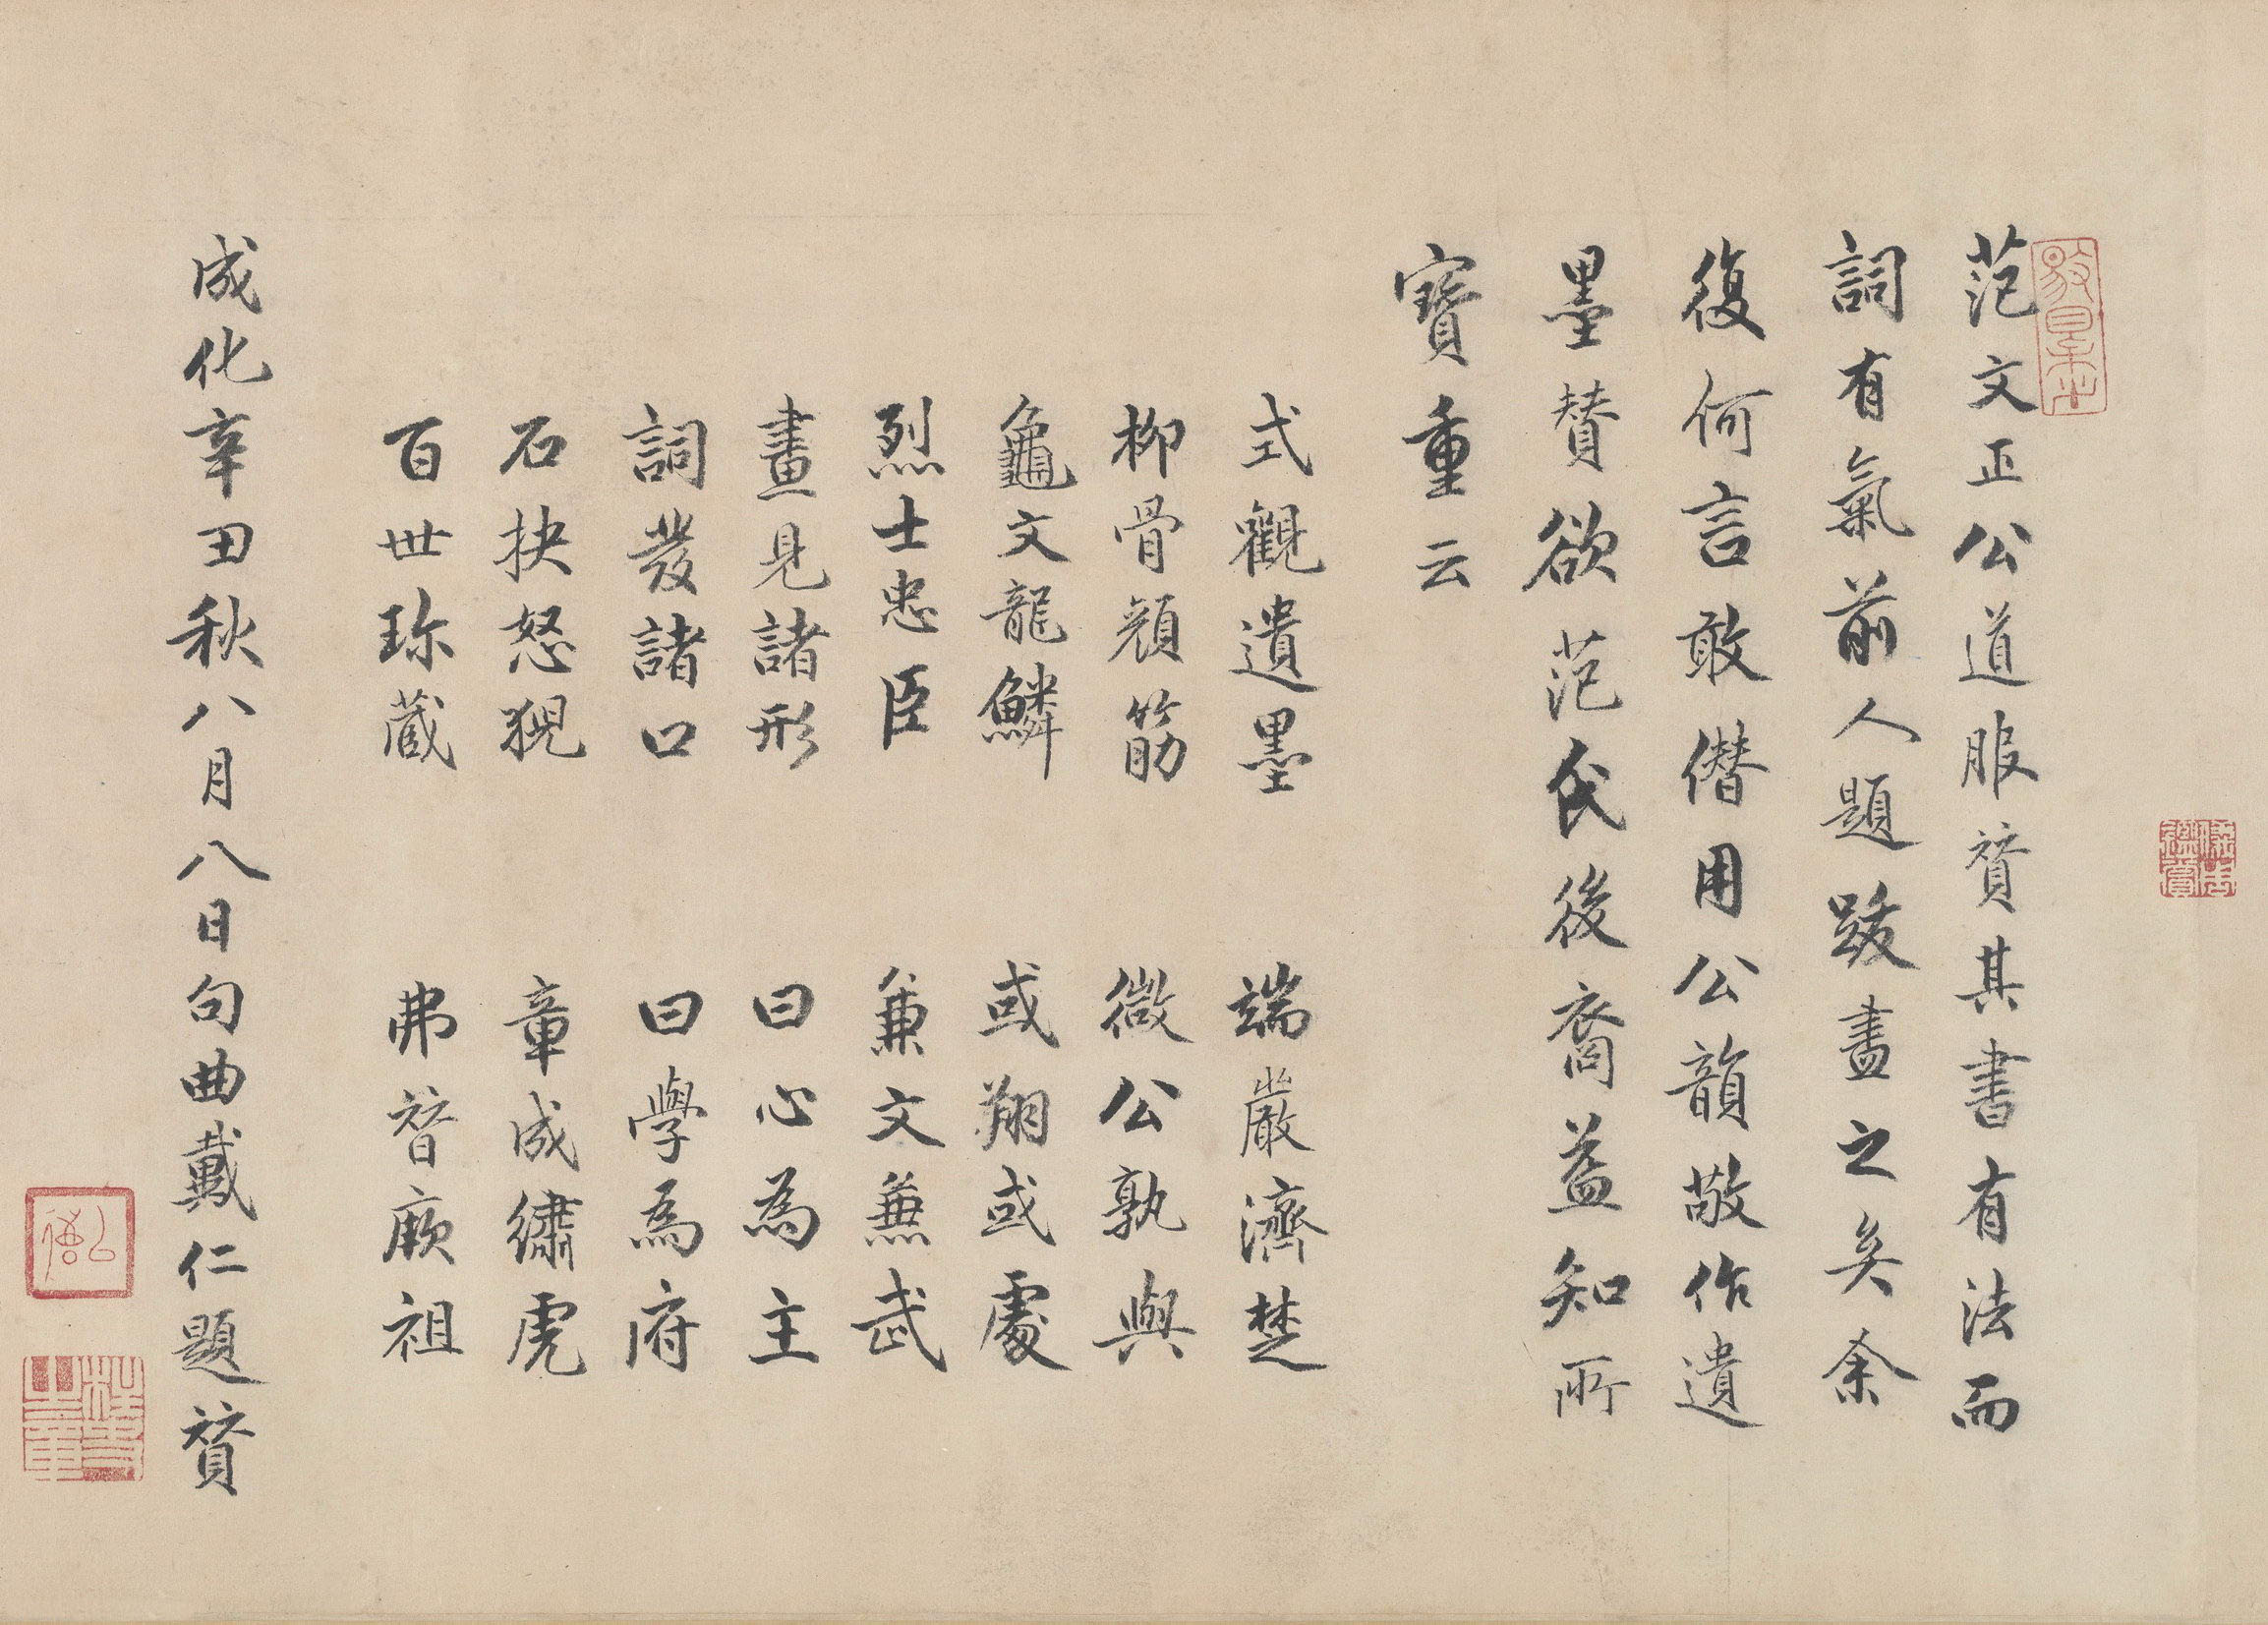 范文正公道服賛其書有法而
詞有氣前人題跋盡之矣余
復何言敢僭用公韻敬作遺
墨賛欲范氏後裔益知所
寶重云
式觀遺墨　端嚴濟楚
柳骨顔筋　微公孰與
龜文龍鱗　或翔或處
烈士忠臣　兼文兼武
畫見諸形　曰心為主
詞發諸口　曰學為府
石抉怒猊　章成繡虎
百世珎蔵　弗替厥祖
成化辛丑秋八月八日句曲戴仁題賛